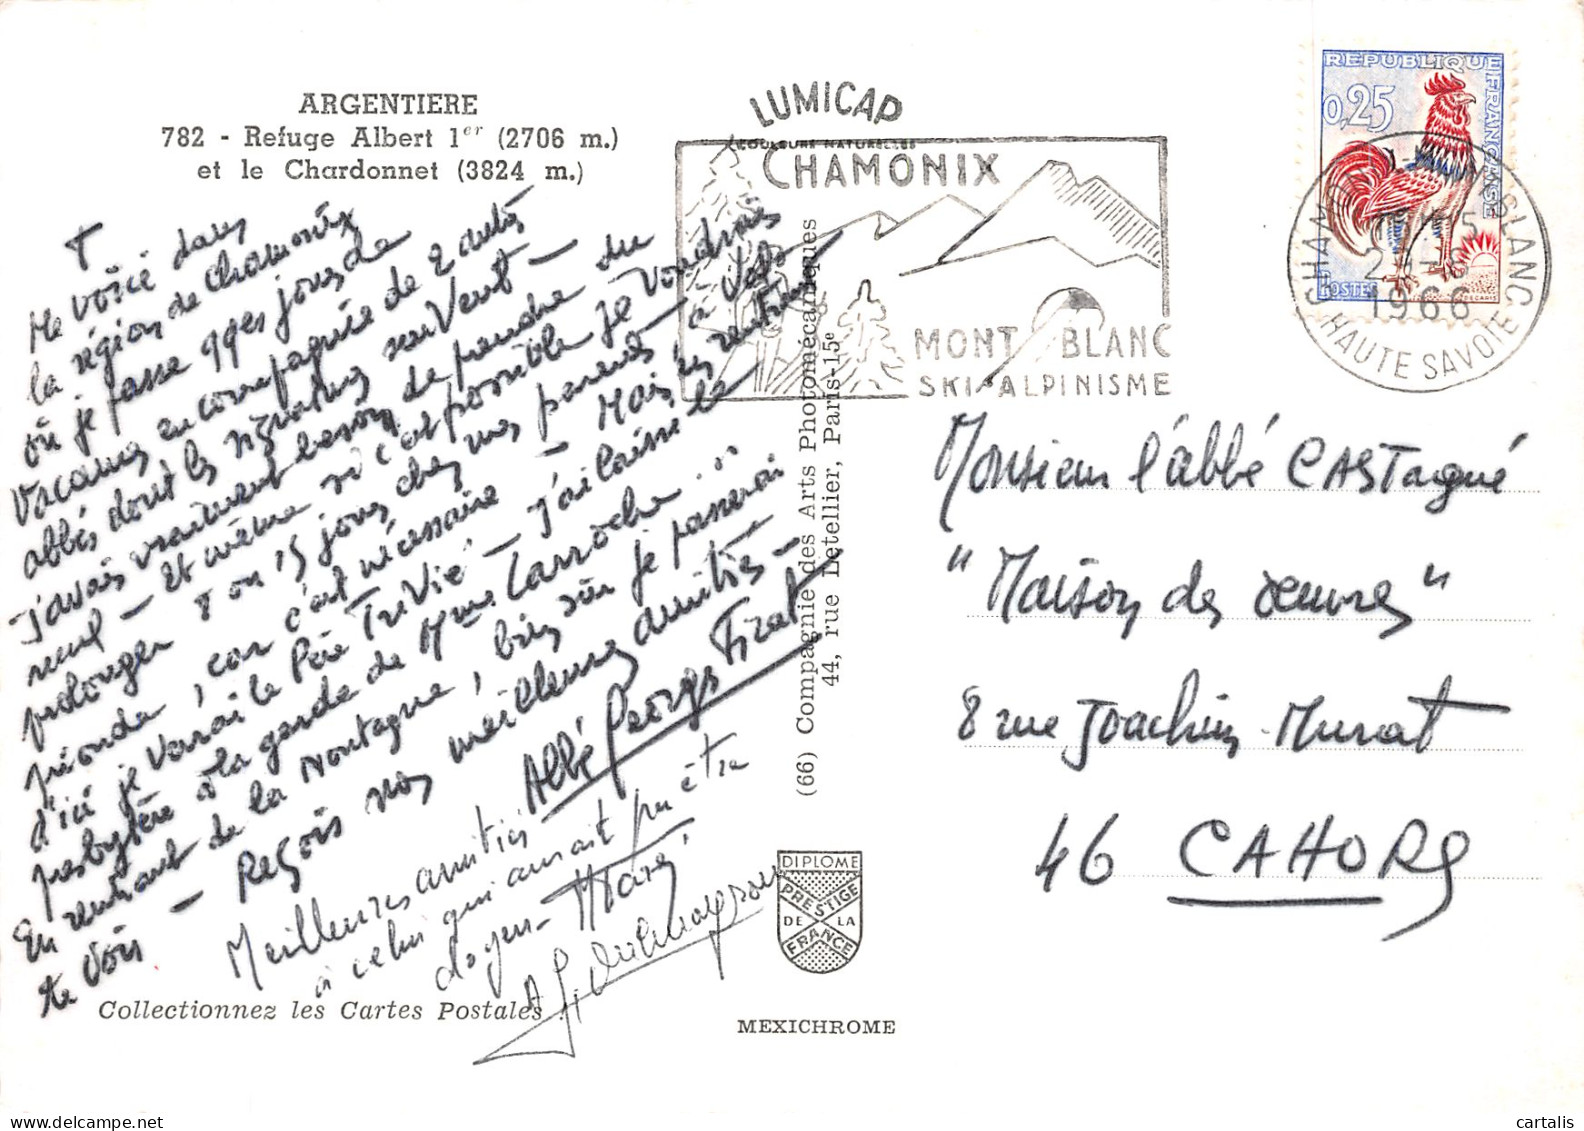 ARGENTIERE
782 - Refuge Albert 1er (2706 m.)
et le Chardonnet (3824 m.)
LUMICAP
COULEURS NATURELLES
CHAMONIX
MONT BLANC
SKI-ALPINISME
REPUBLIQUE FRANÇAISE
0,25
POSTES
DECARIS
CHAMONIX MONT BLANC
1966
HAUTE SAVOIE
Me voici dans
la région de Chamonix
où je passe qqes jours de
vacances en compagnie de 2 autres
abbés dont les signatures suivent -
J'avais vraiment besoin de prendre du
recul - Et même si c'est possible je voudrais
prolonger 8 ou 15 jours chez mes parents à
car c'est nécessaire - Mais en rentrant
d'ici je verrai le Père Trivié - J'ai laissé le
presbytère à la garde de Mme Larroche..
En rentrant de la Montagne, bien sûr je passerai
te voir - Reçois mes meilleures amitiés -
Abbé Georges Fizat
Meilleures amitiés
à celui qui aurait pu être
doyen -
(66) Compagnie des Arts Photomécaniques
44, rue Letellier, Paris-15e
Monsieur l'abbé CASTagné
"Maison des œuvres"
8 rue Joachim-Murat
46 CAHORS
DIPLOME
PRESTIGE
DE LA
FRANCE
Collectionnez les Cartes Postales !
MEXICHROME